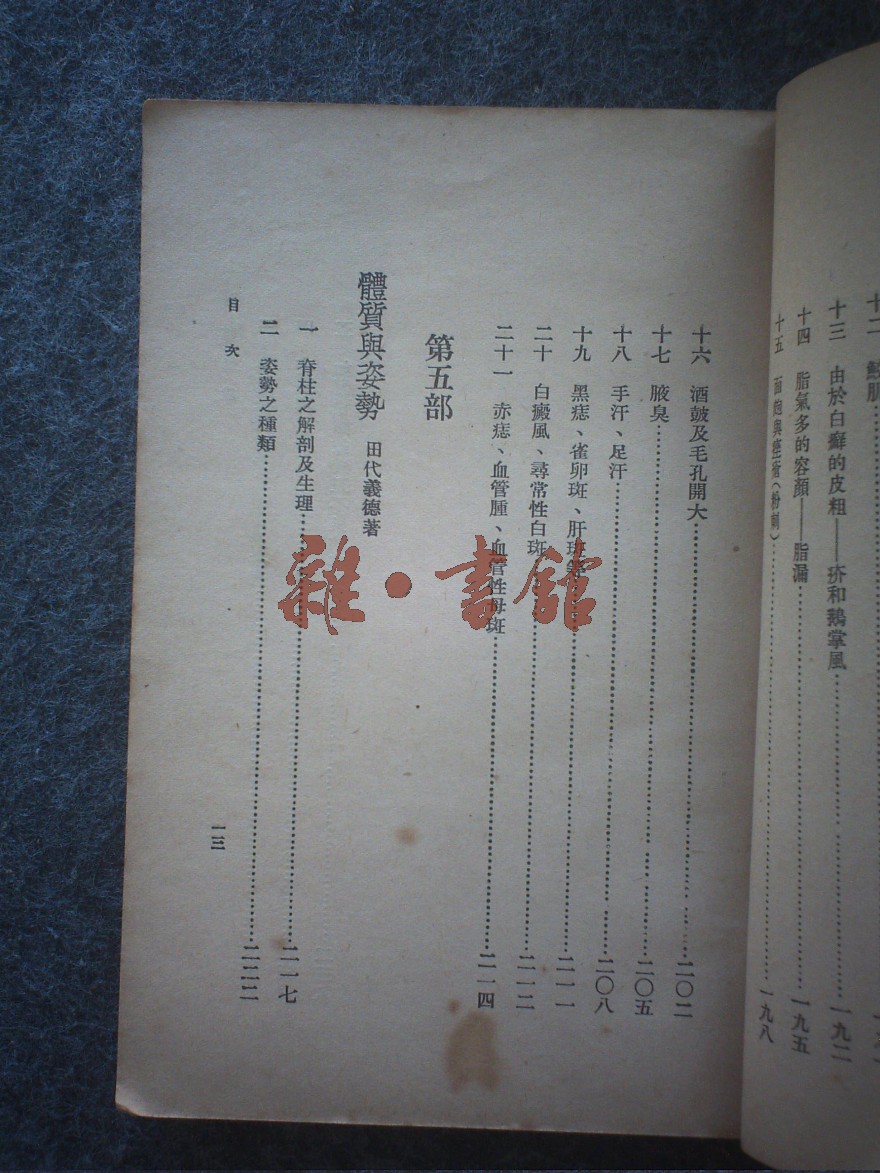 十三　由於白癬的皮粗——疥和鵝掌風……一九二
十四　脂氣多的容顏——脂漏……一九五
十五　面皰與痤瘡（粉刺）……一九八
十六　酒皶及毛孔開大……二〇二
十七　腋臭……二〇五
十八　手汗、足汗……二〇八
十九　黑痣、雀卵斑、肝斑等……二一一
二十　白癜風、尋常性白斑……二一二
二十一　赤痣、血管腫、血管性母斑……二一四
第五部
體質與姿勢　田代義德著
一　脊柱之解剖及生理……二一七
二　姿勢之種類……二二二
目次
一三
雜·書館